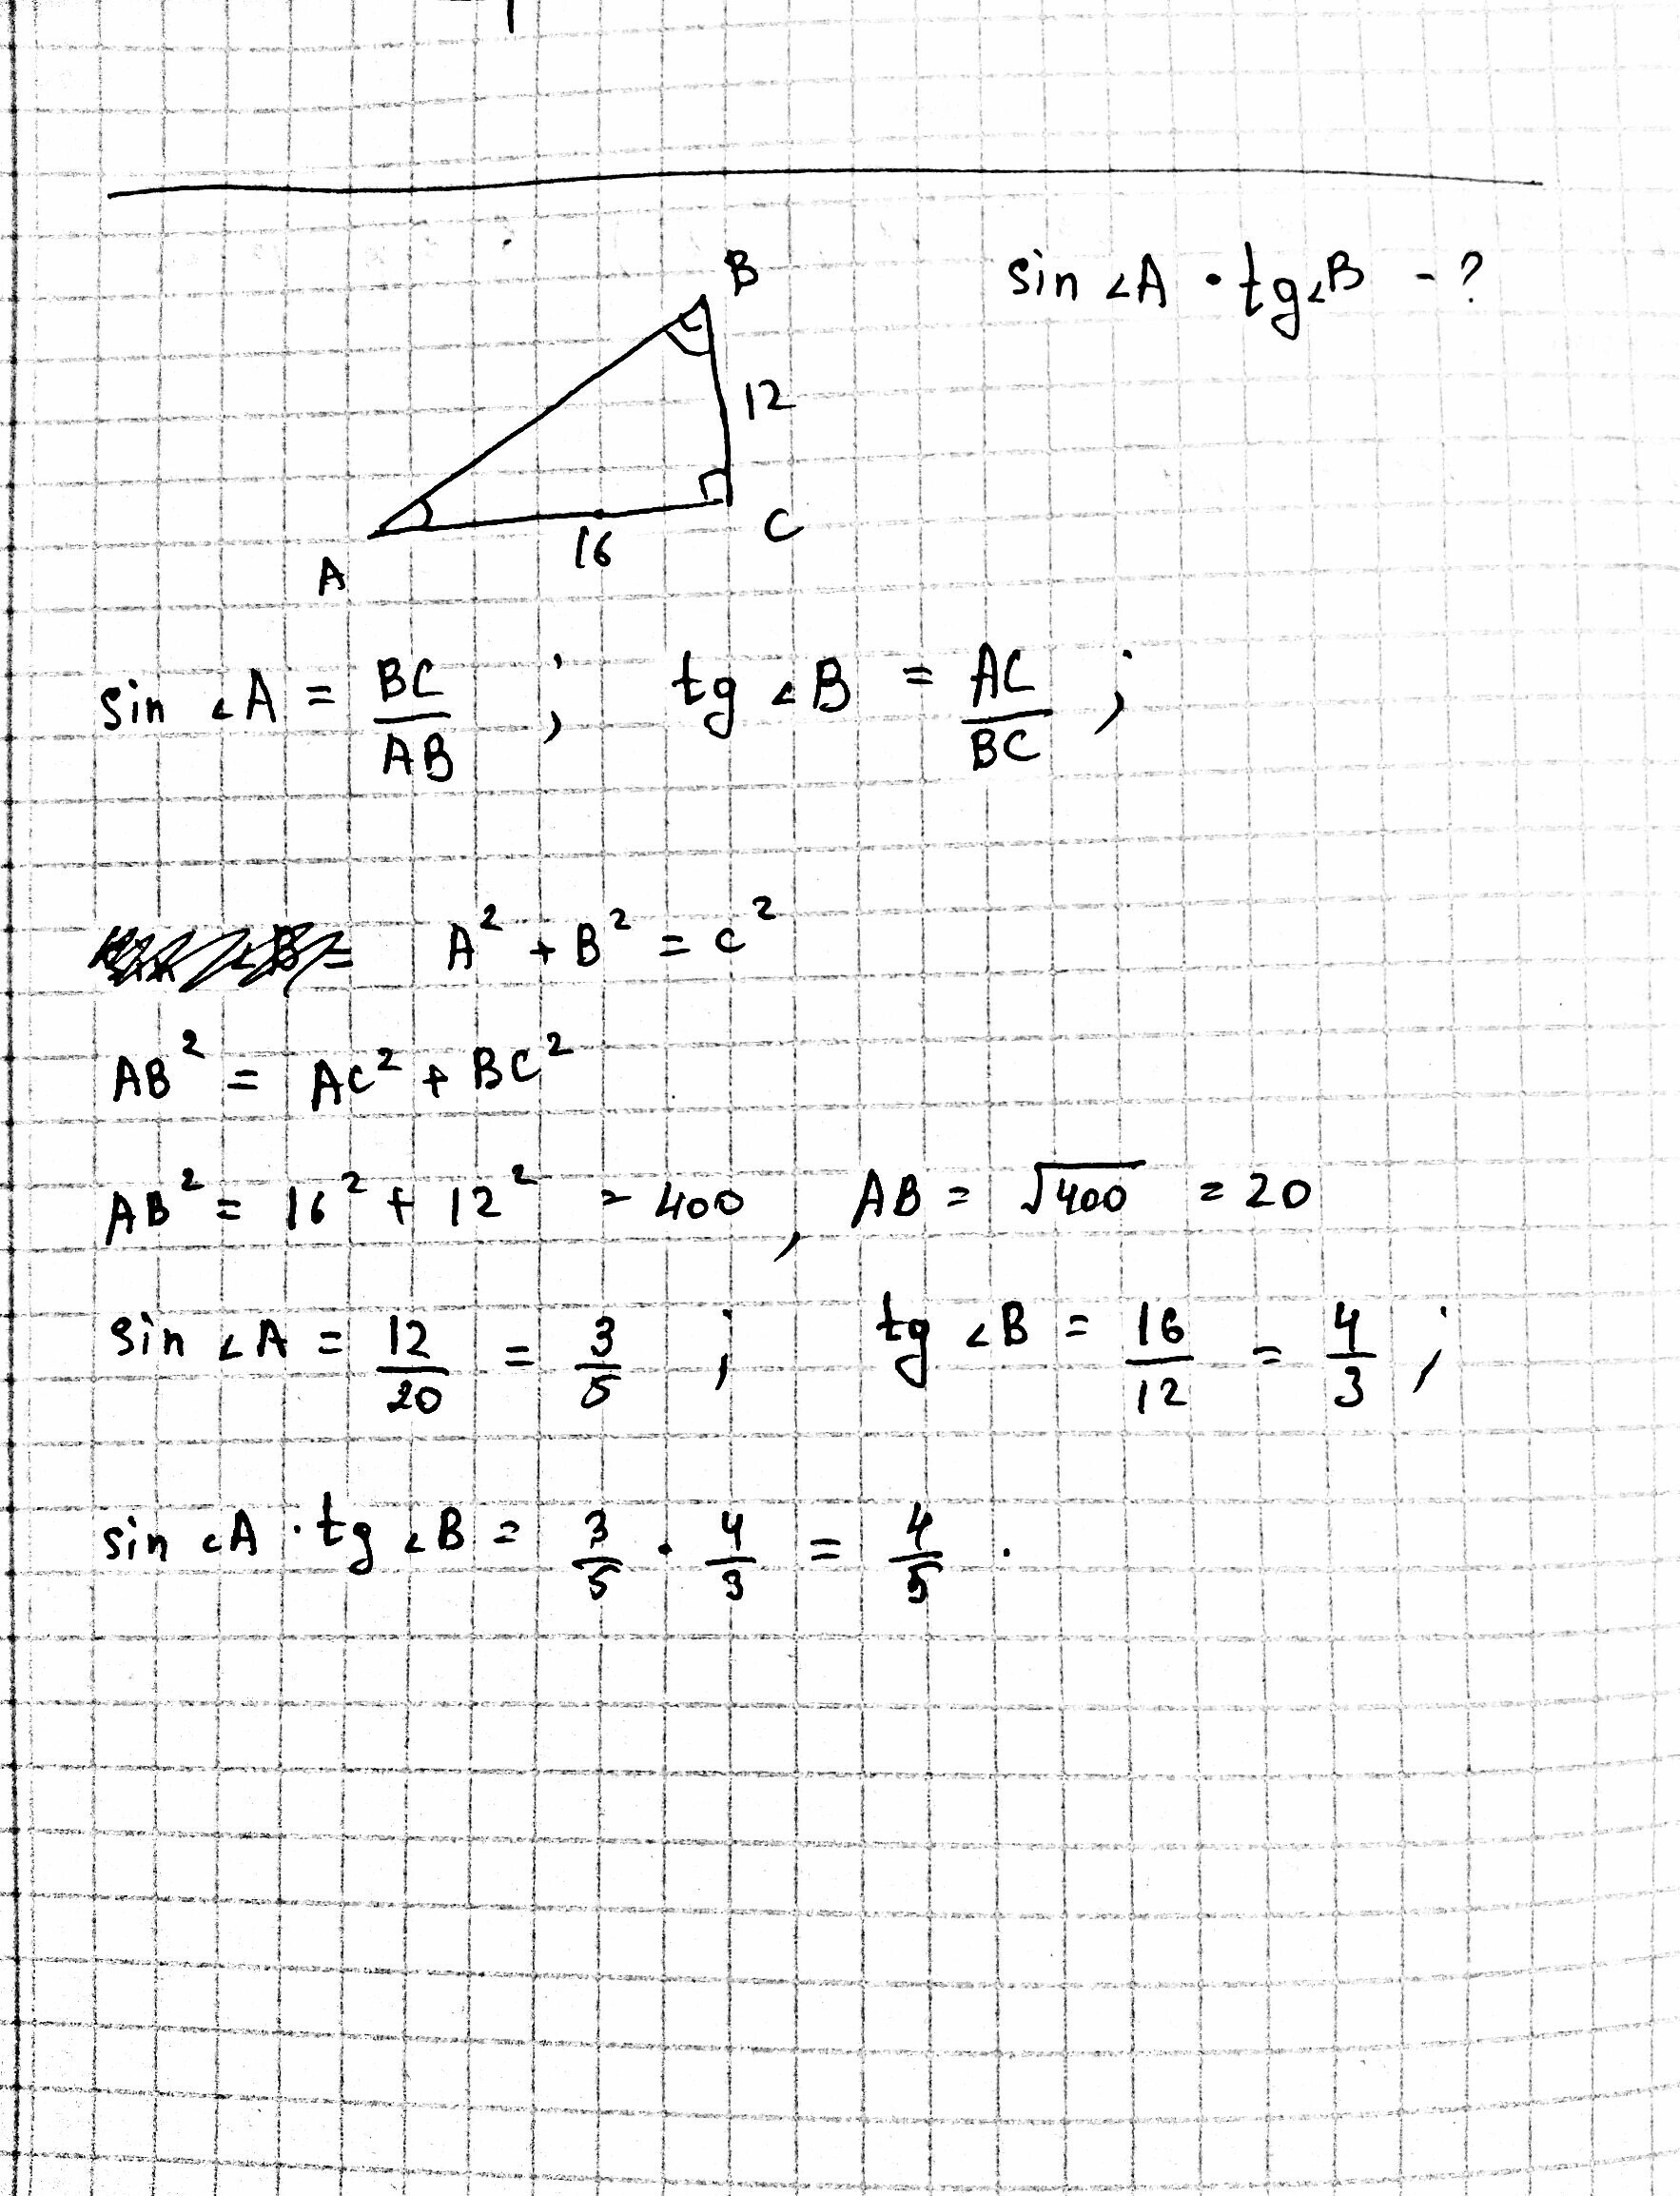 B
sin ∠A · tg∠B - ?
12
16
C
A
sin ∠A = BC/AB ; tg ∠B = AC/BC ;
A² + B² = c²
AB² = AC² + BC²
AB² = 16² + 12² = 400 , AB = √400 = 20
sin ∠A = 12/20 = 3/5 ; tg ∠B = 16/12 = 4/3 ;
sin ∠A · tg ∠B = 3/5 · 4/3 = 4/5 .